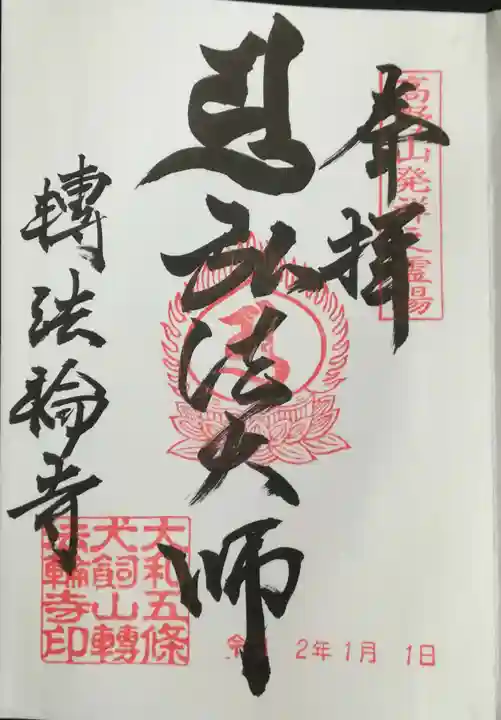 奉拝
高野山発祥之霊場
弘法大師
轉法輪寺
大和五條
犬飼山轉
法輪寺印
令和 2年1月 1日